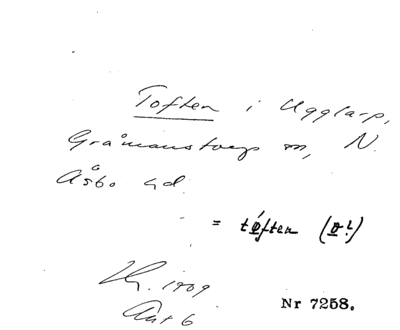 Toften i Ugglarp,
Gråmanstorps sn, N.
Åsbo hd.
= tøften (ø!)
1909
Nr 7258.